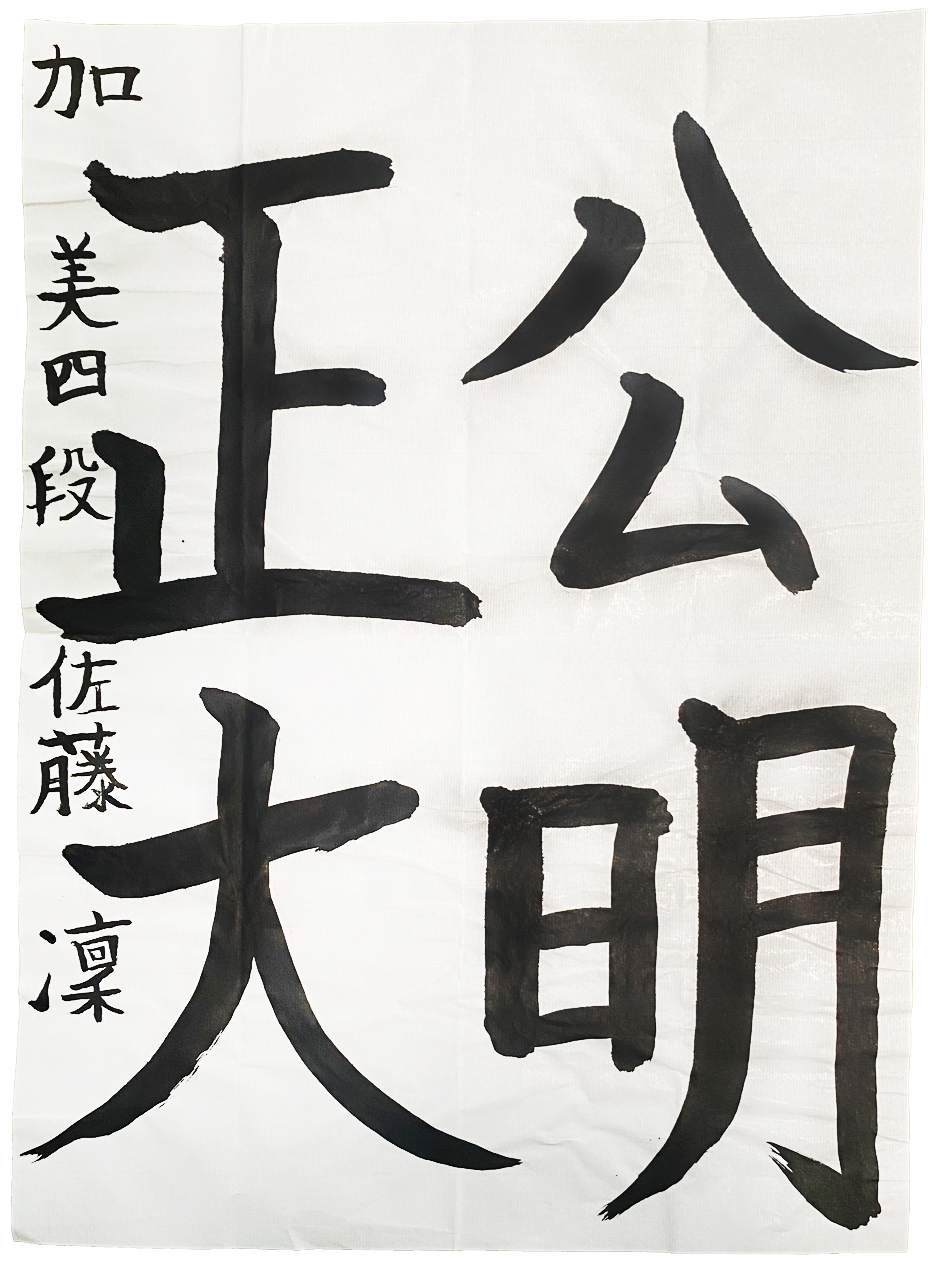 公明
正大
加 美四段 佐藤 凜